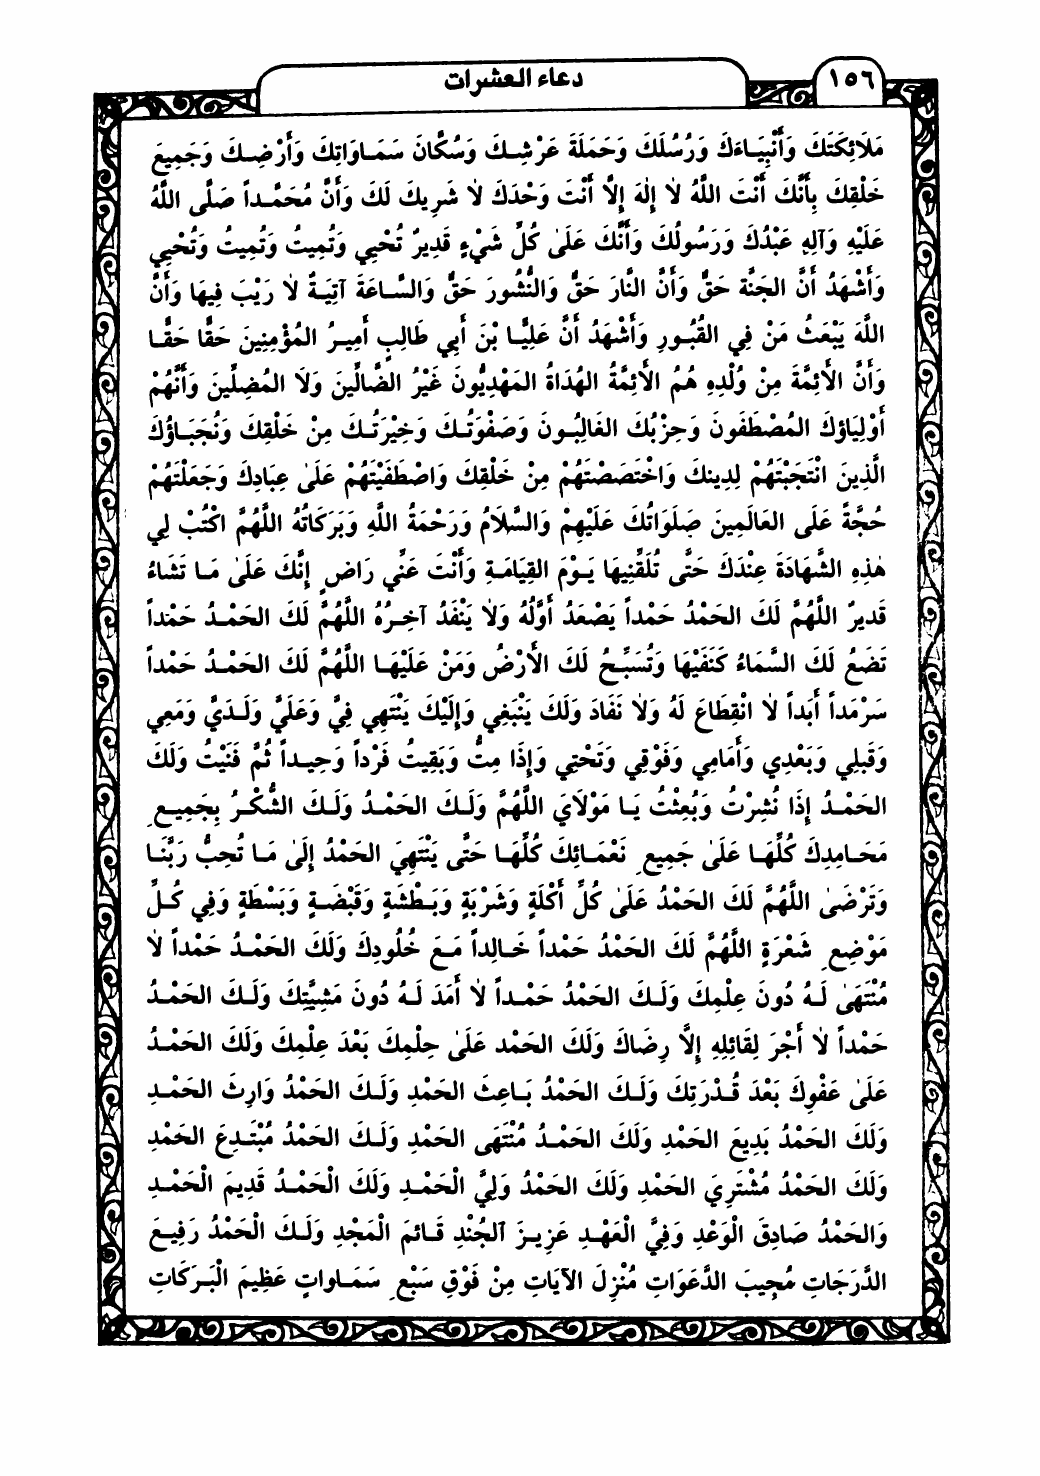 دعاء العشرات
١٥٦
مَلَائِكَتَكَ وَأَنْبِيَـاءَكَ وَرُسُلَكَ وَحَمَلَةَ عَرْشِـكَ وَسُكَّانَ سَمَـاوَاتِكَ وَأَرْضِـكَ وَجَمِيعَ
خَلْقِكَ بِأَنَّكَ أَنْتَ اللَّهُ لاَ إِلٰهَ إِلاَّ أَنْتَ وَحْدَكَ لاَ شَرِيكَ لَكَ وَأَنَّ مُحَمَّـداً صَلَّى اللَّهُ
عَلَيْهِ وَآلِهِ عَبْدُكَ وَرَسُولُكَ وَأَنَّكَ عَلَىٰ كُلِّ شَيْءٍ قَدِيرٌ تُحْيِي وَتُمِيتُ وَتُمِيتُ وَتُحْيِي
وَأَشْهَدُ أَنَّ الجَنَّةَ حَقٌّ وَأَنَّ النَّارَ حَقٌّ وَالنُّشُورَ حَقٌّ وَالسَّـاعَةَ آتِيَـةٌ لاَ رَيْبَ فِيهَا وَأَنَّ
اللَّهَ يَبْعَثُ مَنْ فِي القُبُـورِ وَأَشْهَدُ أَنَّ عَلِيَّـا بْنَ أَبِي طَالِبٍ أَمِيـرُ المُؤْمِنِينَ حَقًّا حَقًّـا
وَأَنَّ الأَئِمَّةَ مِنْ وُلْدِهِ هُمُ الأَئِمَّةُ الهُدَاةُ المَهْدِيُّونَ غَيْرُ الضَّالِّينَ وَلاَ المُضِلِّينَ وَأَنَّهُمْ
أَوْلِيَاؤكَ المُصْطَفَونَ وَحِزْبُكَ الغَالِبُـونَ وَصَفْوَتُـكَ وَخِيْرَتُـكَ مِنْ خَلْقِكَ وَنُجَبَـاؤُكَ
الَّذِينَ انْتَجَبْتَهُمْ لِدِينكَ وَاخْتَصَصْتَهُمْ مِنْ خَلْقِكَ وَاصْطَفَيْتَهُمْ عَلَىٰ عِبَادِكَ وَجَعَلْتَهُمْ
حُجَّةً عَلَى العَالَمِينَ صَلَوَاتُكَ عَلَيْهِمْ وَالسَّلَامُ وَرَحْمَةُ اللَّهِ وَبَرَكَاتُهُ اللَّهُمَّ اكْتُبْ لِي
هٰذِهِ الشَّهَادَةَ عِنْدَكَ حَتَّى تُلَقِّنِيهَا يَـوْمَ القِيَامَـةِ وَأَنْتَ عَنِّي رَاضٍ إِنَّكَ عَلَىٰ مَـا تَشَاءُ
قَدِيرٌ اللَّهُمَّ لَكَ الحَمْدُ حَمْداً يَصْعَدُ أَوَّلُهُ وَلاَ يَنْفَدُ آخِـرُهُ اللَّهُمَّ لَكَ الحَمْـدُ حَمْداً
تَضَعُ لَكَ السَّمَاءُ كَنَفَيْهَا وَتُسَبِّحُ لَكَ الأَرْضُ وَمَنْ عَلَيْهَـا اللَّهُمَّ لَكَ الحَمْـدُ حَمْداً
سَرْمَداً أَبَداً لاَ انْقِطَاعَ لَهُ وَلاَ نَفَادَ وَلَكَ يَنْبَغِي وَإِلَيْكَ يَنْتَهِي فِيَّ وَعَلَيَّ وَلَـدَيَّ وَمَعِي
وَقَبلِي وَبَعْدِي وَأَمَامِي وَفَوْقِي وَتَحْتِي وَإِذَا مِتُّ وَبَقِيتُ فَرْداً وَحِيـداً ثُمَّ فَنَيْتُ وَلَكَ
الحَمْـدُ إِذَا نُشِرْتُ وَبُعِثْتُ يَـا مَوْلَايَ اللَّهُمَّ وَلَـكَ الحَمْـدُ وَلَـكَ الشُّكْـرُ بِجَمِيـعِ
مَحَـامِدِكَ كُلِّهَـا عَلَىٰ جَمِيعِ نَعْمَـائِكَ كُلِّهَـا حَتَّى يَنْتَهِيَ الحَمْدُ إِلَىٰ مَـا تُحِبُّ رَبَّنَـا
وَتَرْضَىٰ اللَّهُمَّ لَكَ الحَمْدُ عَلَىٰ كُلِّ أَكْلَةٍ وَشَرْبَةٍ وَبَـطْشَةٍ وَقَبْضَـةٍ وَبَسْطَةٍ وَفِي كُـلِّ
مَوْضِعِ شَعْرَةٍ اللَّهُمَّ لَكَ الحَمْدُ حَمْداً خَـالِداً مَـعَ خُلُودِكَ وَلَكَ الحَمْـدُ حَمْداً لاَ
مُنْتَهَىٰ لَـهُ دُونَ عِلْمِكَ وَلَـكَ الحَمْدُ حَمْـداً لاَ أَمَدَ لَـهُ دُونَ مَشِيَّتِكَ وَلَـكَ الحَمْـدُ
حَمْداً لاَ أَجْرَ لِقَائِلِهِ إِلاَّ رِضَاكَ وَلَكَ الحَمْد عَلَىٰ حِلْمِكَ بَعْدَ عِلْمِكَ وَلَكَ الحَمْـدُ
عَلَىٰ عَفْوِكَ بَعْدَ قُـدْرَتِكَ وَلَـكَ الحَمْدُ بَـاعِثَ الحَمْدِ وَلَـكَ الحَمْدُ وَارِثَ الحَمْـدِ
وَلَكَ الحَمْدُ بَدِيعَ الحَمْدِ وَلَكَ الحَمْـدُ مُنْتَهَى الحَمْدِ وَلَـكَ الحَمْدُ مُبْتَـدِعَ الحَمْدِ
وَلَكَ الحَمْدُ مُشْتَرِيَ الحَمْدِ وَلَكَ الحَمْدُ وَلِيَّ الْحَمْـدِ وَلَكَ الْحَمْـدُ قَدِيمَ الْحَمْـدِ
وَالحَمْدُ صَادِقَ الْوَعْدِ وَفِيَّ الْعَهْـدِ عَزِيـزَ الجُنْدِ قَـائمَ الْمَجْدِ وَلَـكَ الْحَمْدُ رَفِيـعَ
الدَّرَجَاتِ مُجِيبَ الدَّعَوَاتِ مُنْزِلَ الآيَاتِ مِنْ فَوْقِ سَبْعِ سَمَـاواتٍ عَظِيمَ الْبَـرَكَاتِ